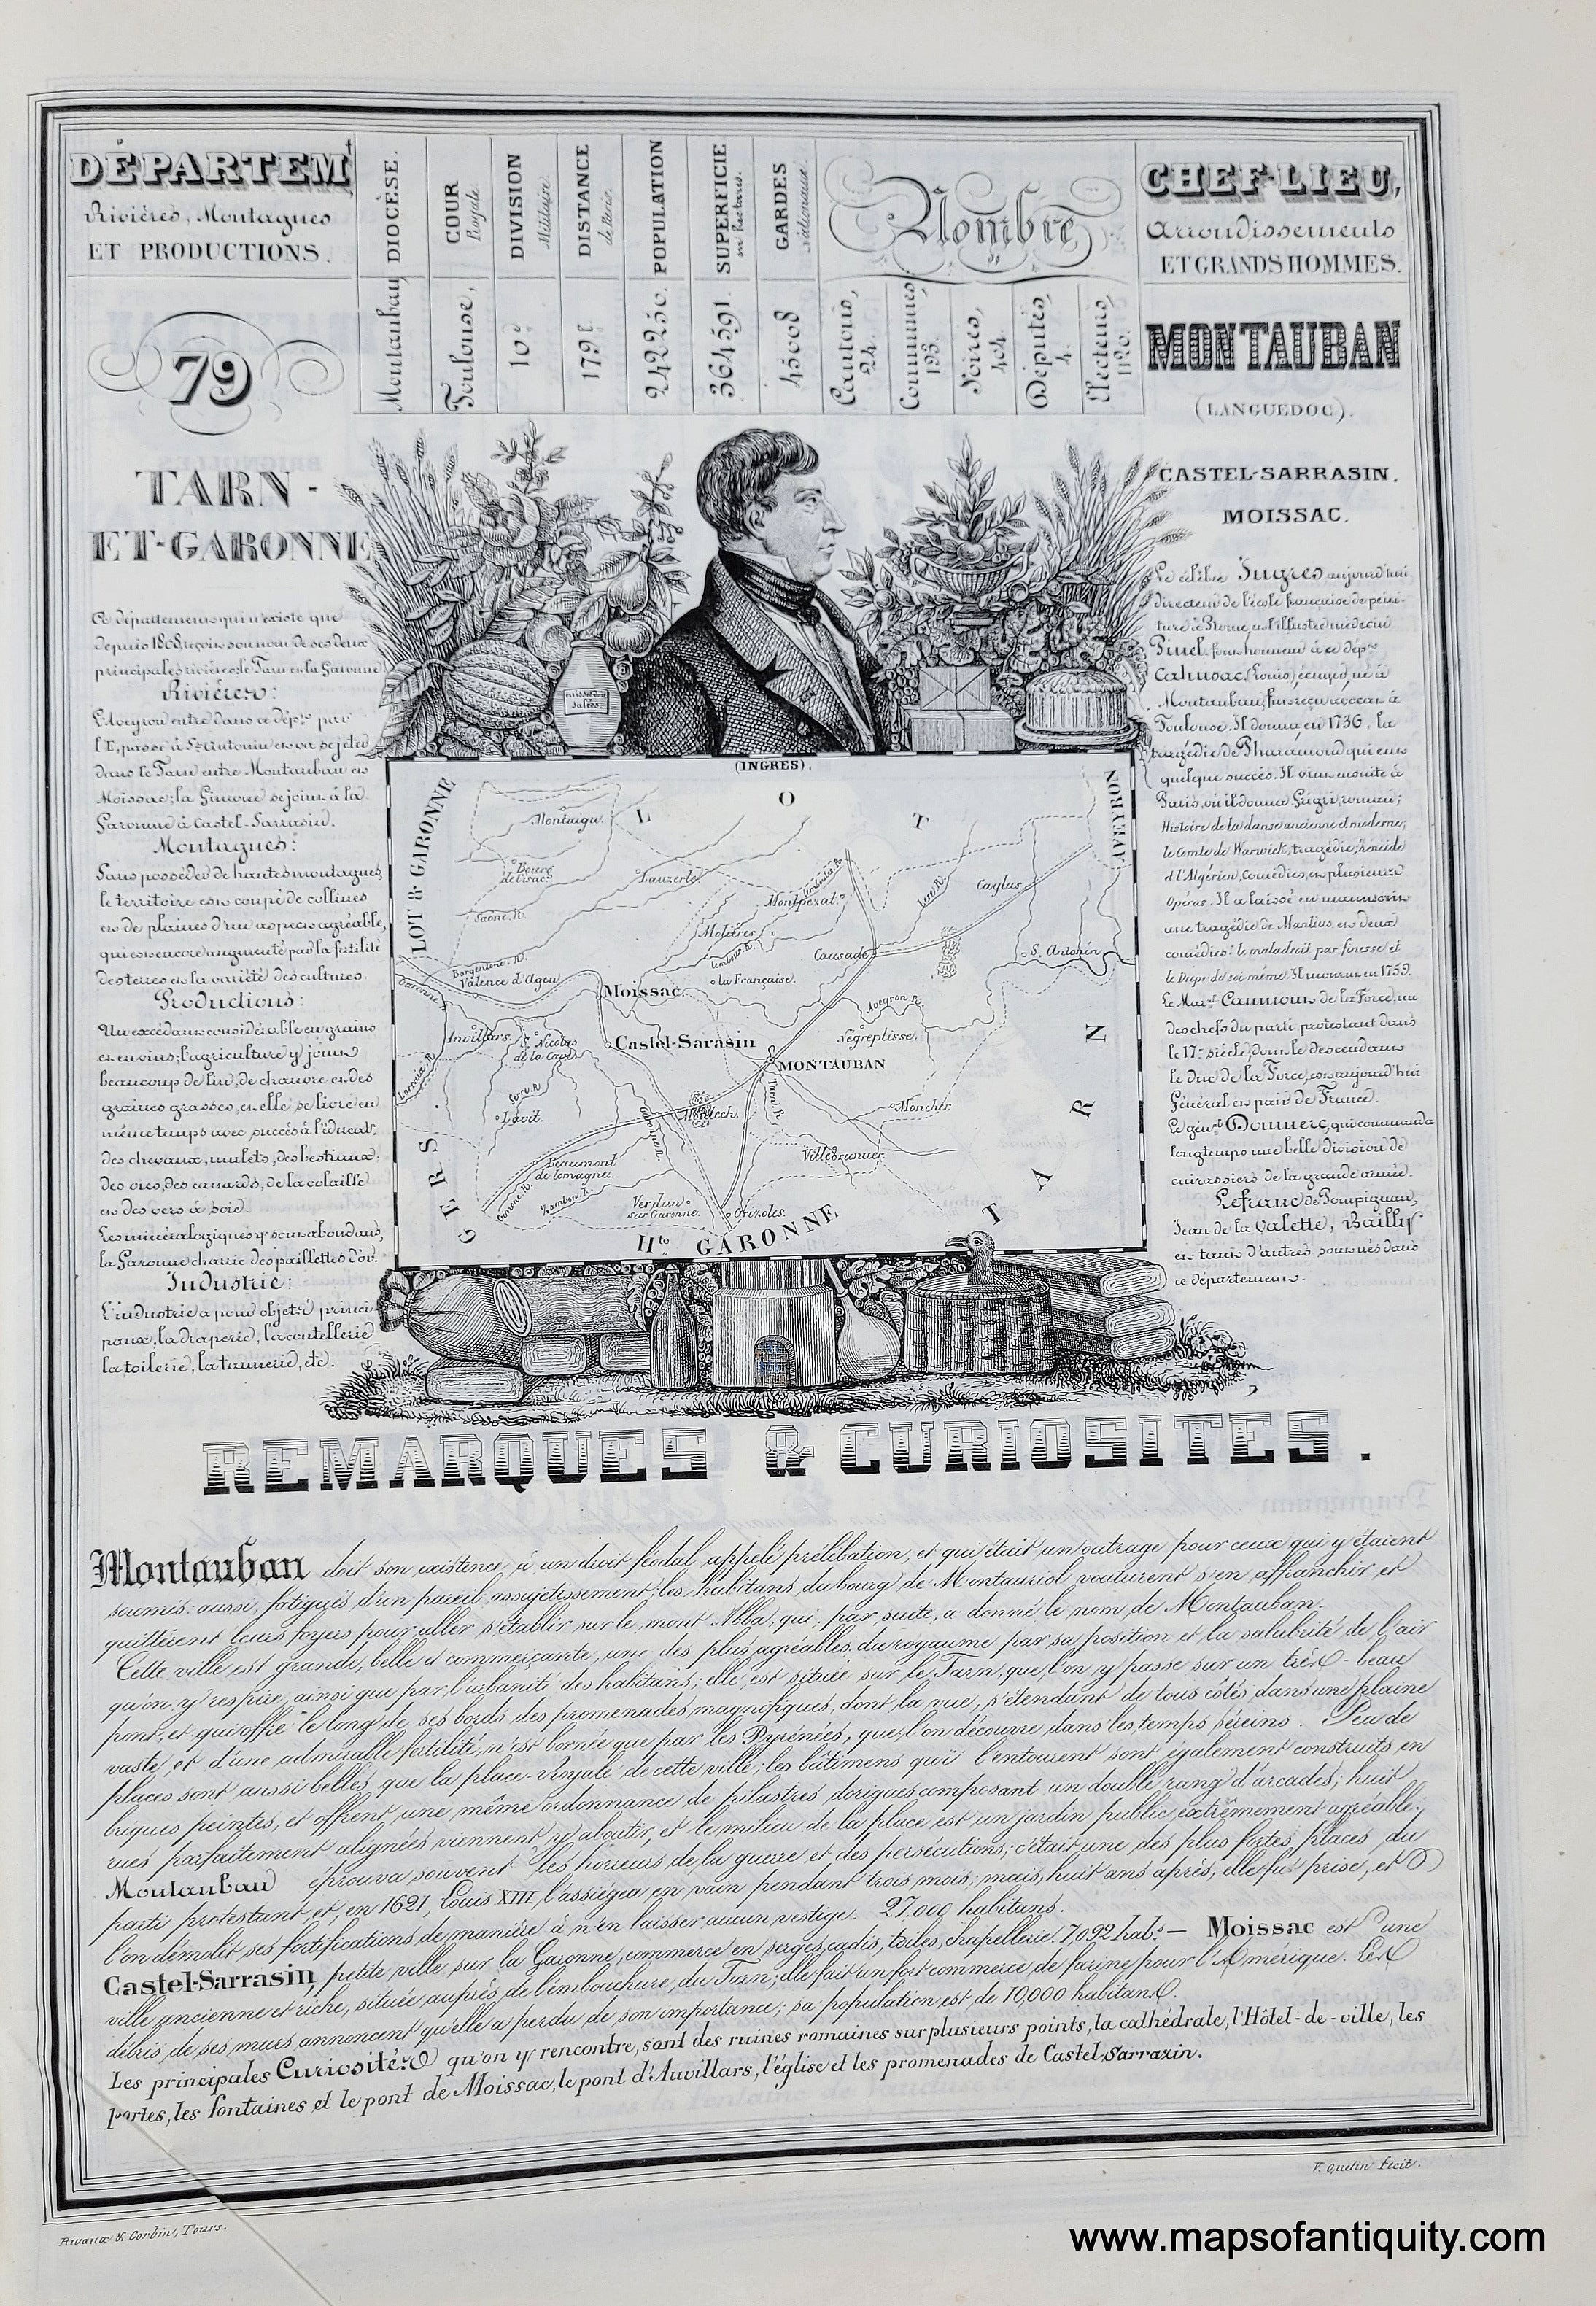 DÉPARTEM.t
Rivières, Montagnes
ET PRODUCTIONS.
DIOCÈSE.
COUR Royale
DIVISION Militaire.
DISTANCE de Paris.
POPULATION
SUPERFICIE en hectares.
GARDES nationaux.
Nombre
CHEF-LIEU,
Arrondissements
ET GRANDS HOMMES.
79
Montauban
Toulouse,
10e
179 l.
242250.
364591.
45008
Cantons, 24.
Communes, 193.
Foires, 404.
Députés, 4.
Electeurs, 1120.
MONTAUBAN
(LANGUEDOC).
TARN-
ET-GARONNE
CASTEL-SARRASIN.
MOISSAC.
Ce département qui n'existe que
depuis 1808, reçoit son nom de ses deux
principales rivières, le Tarn et la Garonne
Rivières:
L'Aveyron entre dans ce dépt. par
l'E, passe à St. Antonin et va se jeter
dans le Tarn entre Montauban et
Moissac; la Gimone se joint à la
Garonne à Castel-Sarrasin.
Montagnes:
Sans posséder de hautes montagnes,
le territoire est coupé de collines
et de plaines d'un aspect agréable,
qui est encore augmenté par la fertilité
des terres et la variété des cultures.
Productions:
Un excédant considérable en grains
et en vins; l'agriculture y joint
beaucoup de lin, de chanvre et des
graines grasses, et elle se livre en
même temps avec succès à l'éducat.
des chevaux, mulets, des bestiaux,
des oies, des canards, de la volaille
et des vers à soie.
Les minéralogiques y sont abondans,
la Garonne charrie des paillettes d'or.
Industrie:
L'industrie a pour objets princi-
paux, la draperie, la coutellerie
la toilerie, la tannerie, etc.
Le célèbre Ingres aujourd'hui
directeur de l'école française de pein-
ture à Rome, et l'illustre médecin
Pinel font honneur à ce dépt.
Cahusac (Louis), écuyer, né à
Montauban, fut reçu avocat à
Toulouse. Il donna, en 1736, la
tragédie de Pharamond qui eut
quelque succès. Il vint ensuite à
Paris, où il donna Grigri, roman;
Histoire de la danse ancienne et moderne;
le Comte de Warwick, tragédie; Zénéide
et l'Algérien, comédies, et plusieurs
Opéras. Il a laissé en manuscrit
une tragédie de Manlius, et deux
comédies: le maladroit par finesse et
le Dupe de soi même. Il mourut en 1759.
Le Marl. Caumont de la Force, un
des chefs du parti protestant dans
le 17e siècle, dont le descendant
le duc de la Force, est aujourd'hui
Général et pair de France.
Le génl. Doumerc, qui commanda
longtemps une belle division de
cuirassiers de la grande armée.
Lefranc de Pompignan,
Jean de la Valette, Bailly
et tant d'autres sont nés dans
ce département.
(INGRES).
LOT & GARONNE
L O T
AVEYRON
Montaigu.
Bourg de Visac.
Lauzerte.
Saône. R.
Montpezat.
Lere R.
Caylus
Molières
Causade
S. Antonin
Barguelone. R.
Valence d'Agen
Garonne
Moissac
la Française.
Aveyron R.
Auvillars.
S. Nicolas de la Grave
Castel-Sarasin
Négreplisse.
MONTAUBAN
Serre R.
Lavit.
Garonne R.
Montech.
Tarn R.
Moncher.
Beaumont de lomagne.
Villebrunier.
Verdun sur Garonne.
Grizoles.
GERS.
Hte. GARONNE
T A R N
REMARQUES & CURIOSITES.
Montauban doit son existence à un droit féodal appelé prélibation, et qui était un outrage pour ceux qui y étaient
soumis: aussi, fatigués d'un pareil assujetissement, les habitans du bourg de Montauriol voulurent s'en affranchir et
quittèrent leurs foyers pour aller s'établir sur le mont Alba, qui, par suite, a donné le nom de Montauban.
Cette ville est grande, belle et commerçante, une des plus agréables du royaume par sa position et la salubrité de l'air
qu'on y respire, ainsi que par l'urbanité des habitans; elle est située sur le Tarn, que l'on y passe sur un très-beau
pont, et qui offre le long de ses bords des promenades magnifiques, dont la vue, s'étendant de tous côtés dans une plaine
vaste et d'une admirable fertilité, n'est bornée que par les Pyrénées, que l'on découvre dans les temps séreins. Peu de
places sont aussi belles que la place-Royale de cette ville; les bâtimens qui l'entourent sont également construits en
briques peintes, et offrent une même ordonnance de pilastres doriques composant un double rang d'arcades; huit
rues parfaitement alignées viennent y aboutir, et le milieu de la place est un jardin public extrêmement agréable.
Montauban éprouva souvent les horreurs de la guerre et des persécutions; c'était une des plus fortes places du
parti protestant, et, en 1621, Louis XIII l'assiégea en vain pendant trois mois; mais, huit ans après, elle fut prise, et
l'on démolit ses fortifications de manière à n'en laisser aucun vestige. 27.000 habitans.
Castel-Sarrasin, petite ville sur la Garonne, commerce en serges, cadis, toiles, chapellerie. 7,092 hab.s — Moissac est une
ville ancienne et riche, située auprès de l'embouchure du Tarn; elle fait un fort commerce de farine pour l'Amérique. Les
débris de ses murs annoncent qu'elle a perdu de son importance; sa population est de 10,000 habitans.
Les principales Curiosités qu'on y rencontre, sont des ruines romaines sur plusieurs points, la cathédrale, l'Hôtel-de-ville, les
portes, les fontaines et le pont de Moissac, le pont d'Auvillars, l'église et les promenades de Castel-Sarrazin.
V. Quetin fecit.
Rivaux & Corbin, Tours.
www.mapsofantiquity.com